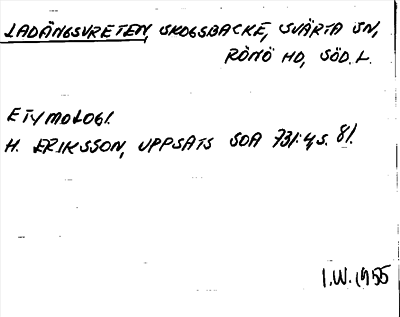 LADÄNGSVRETEN, SKOGSBACKE, SVÄRTA SN,
RÖNÖ HD, SÖD. L.
ETYMOLOGI.
H. ERIKSSON, UPPSATS SOA 731:4, s. 81.
I.W. 1955